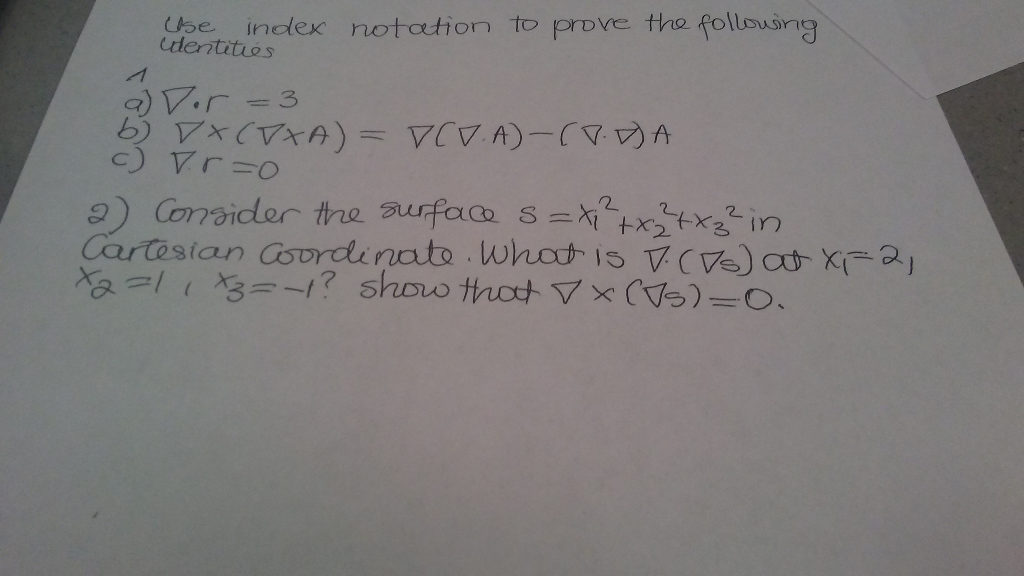 Use index notation to prove the following
identities
1
a) ∇·r = 3
b) ∇×(∇×A) = ∇(∇.A)-(∇.∇)A
c) ∇.r=0
2) Consider the surface s = x₁²+x₂²+x₃² in
Cartesian Coordinate. What is ∇.(∇s) at x₁=2,
x₂=1, x₃=-1? show that ∇×(∇s)=0.